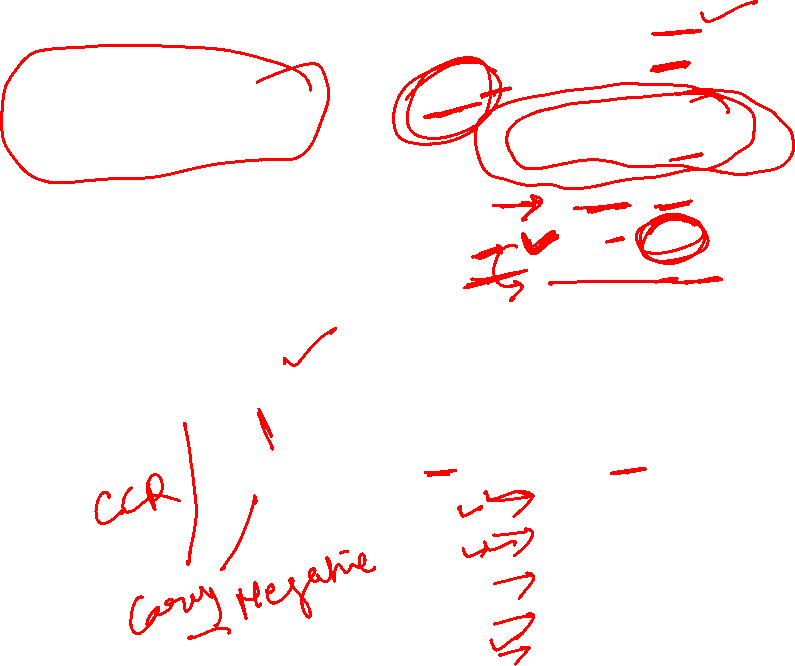 CCR
Carry Negative